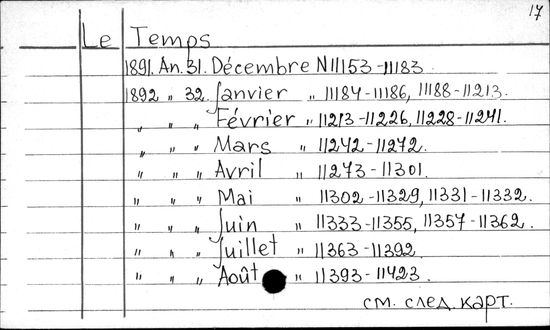 17
Le Temps
1891. An. 31. Décembre N 11153-11183
1892 „ 32. Janvier „ 11184-11186, 11188-11213.
„ „ „ Février „ 11213-11226, 11228-11241.
„ „ „ Mars „ 11242-11272.
„ „ „ Avril „ 11273-11301.
„ „ „ Mai „ 11302-11329, 11331-11332.
„ „ „ Juin „ 11333-11355, 11357-11362.
„ „ „ Juillet „ 11363-11392
„ „ „ Août „ 11393-11423.
см. след. карт.